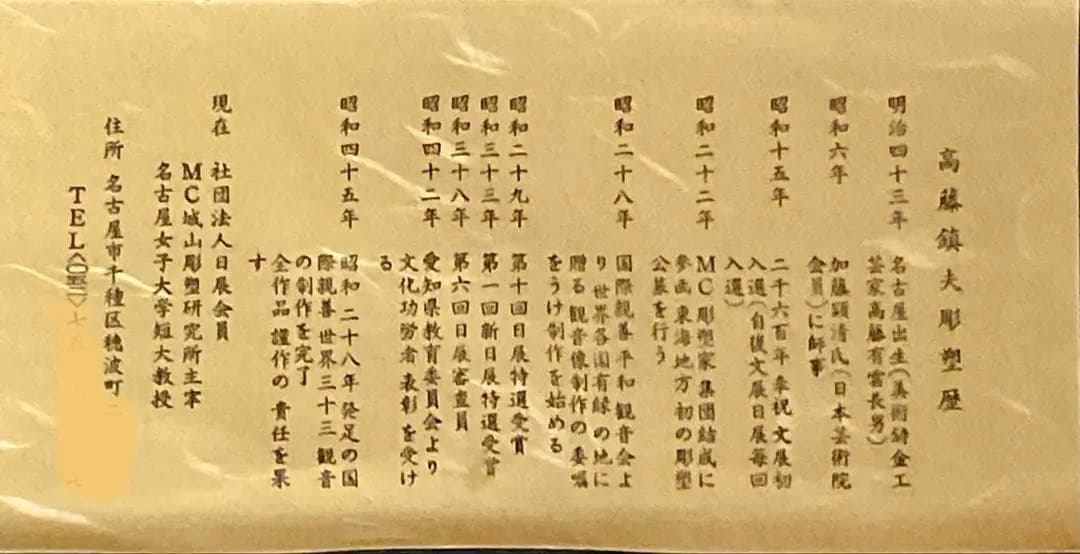 高藤鎮夫彫塑歴
明治四十三年 名古屋出生(美術鋳金工
芸家高藤有雲長男)
昭和六年 加藤顕清氏(日本芸術院
会員)に師事
昭和十五年 二千六百年奉祝文展初
入選(自後文展日展毎回
入選)
昭和二十二年 MC彫塑家集団結成に
参画東海地方初の彫塑
公募を行う
昭和二十八年 国際親善平和観音会よ
り世界各国有縁の地に
贈る観音像制作の委嘱
をうけ制作を始める
昭和二十九年 第十回日展特選受賞
昭和三十三年 第一回新日展特選受賞
昭和三十八年 第六回日展審査員
昭和四十二年 愛知県教育委員会より
文化功労者表彰を受け
る
昭和四十五年 昭和二十八年発足の国
際親善世界三十三観音
の制作を完了
全作品謹作の責任を果
す
現在 社団法人日展会員
MC城山彫塑研究所主宰
名古屋女子大学短大教授
住所 名古屋市千種区穂波町二
TEL〈〇五二〉七五 七